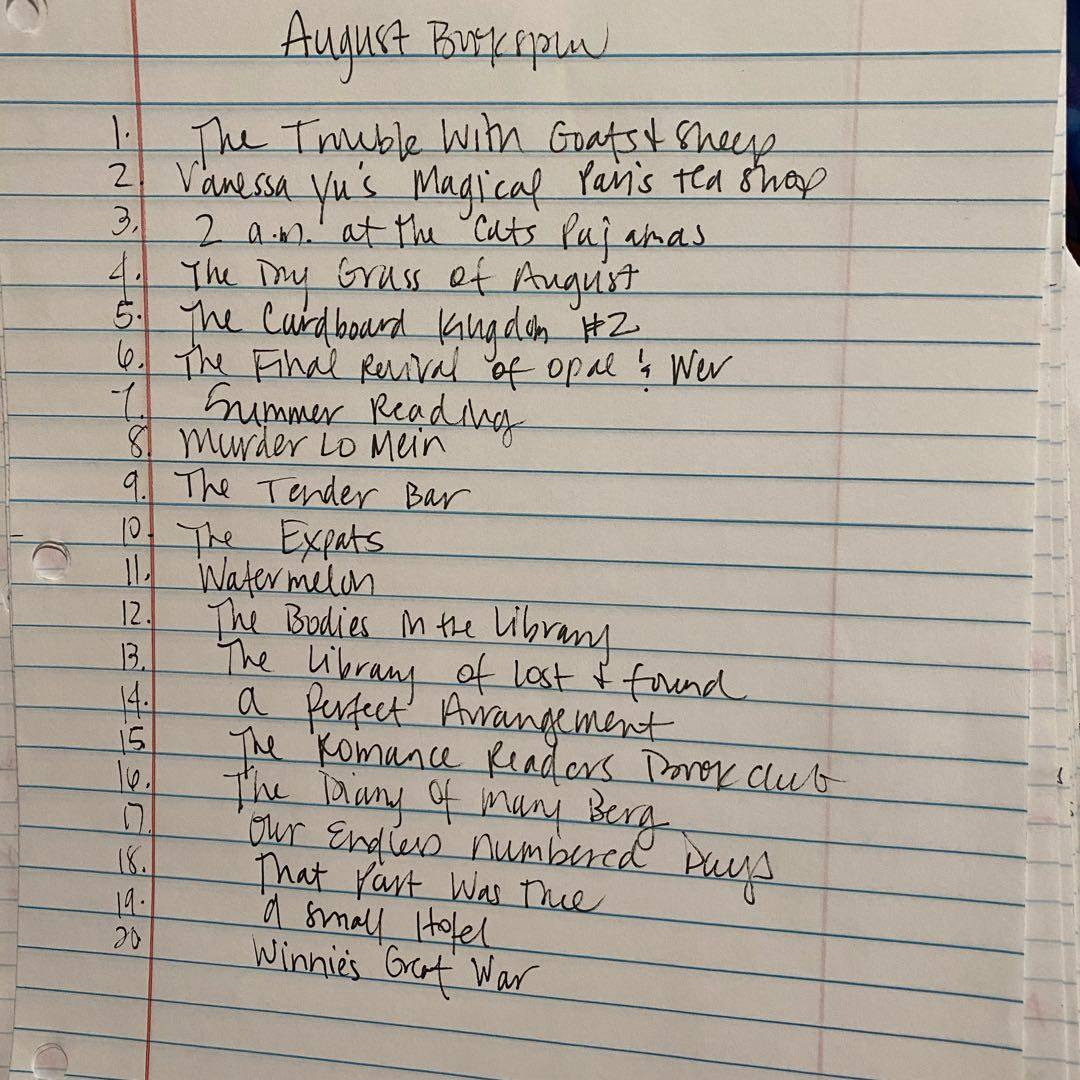 August Bookspin
1. The Trouble With Goats & Sheep
2. Vanessa Yu's Magical Paris tea shop
3. 2 a.m. at the Cats Pajamas
4. The Dry Grass of August
5. The Cardboard Kingdom #2
6. The Final Revival of Opal & Nev
7. Summer Reading
8. Murder Lo Mein
9. The Tender Bar
10. The Expats
11. Watermelon
12. The Bodies in the Library
13. The Library of Lost & Found
14. a Perfect Arrangement
15 The Romance Readers Book club
16. The Diary of Mary Berg
17. Our Endless Numbered Days
18. That Part Was True
19. a small Hotel
20 Winnie's Great War